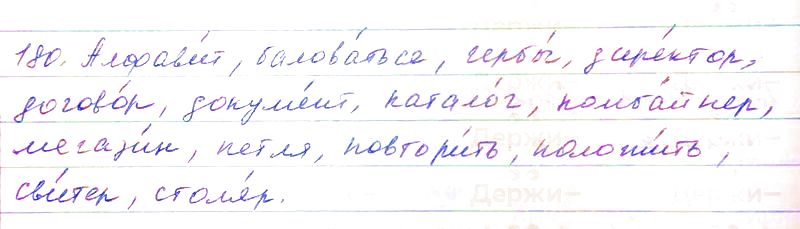 180. Алфави́т, балова́ться, гербы́, дире́ктор,
догово́р, докуме́нт, катало́г, комба́йнер,
мегази́н, петля, повтори́ть, положи́ть,
сви́тер, столя́р.